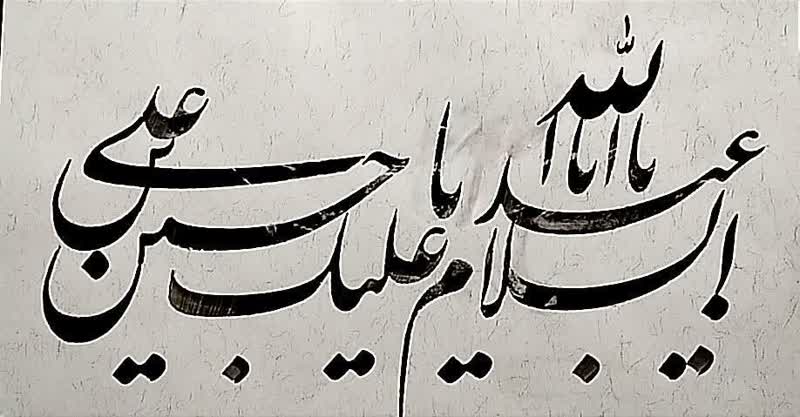 السلام علیک یا ابا عبد الله یا حسین بن علی